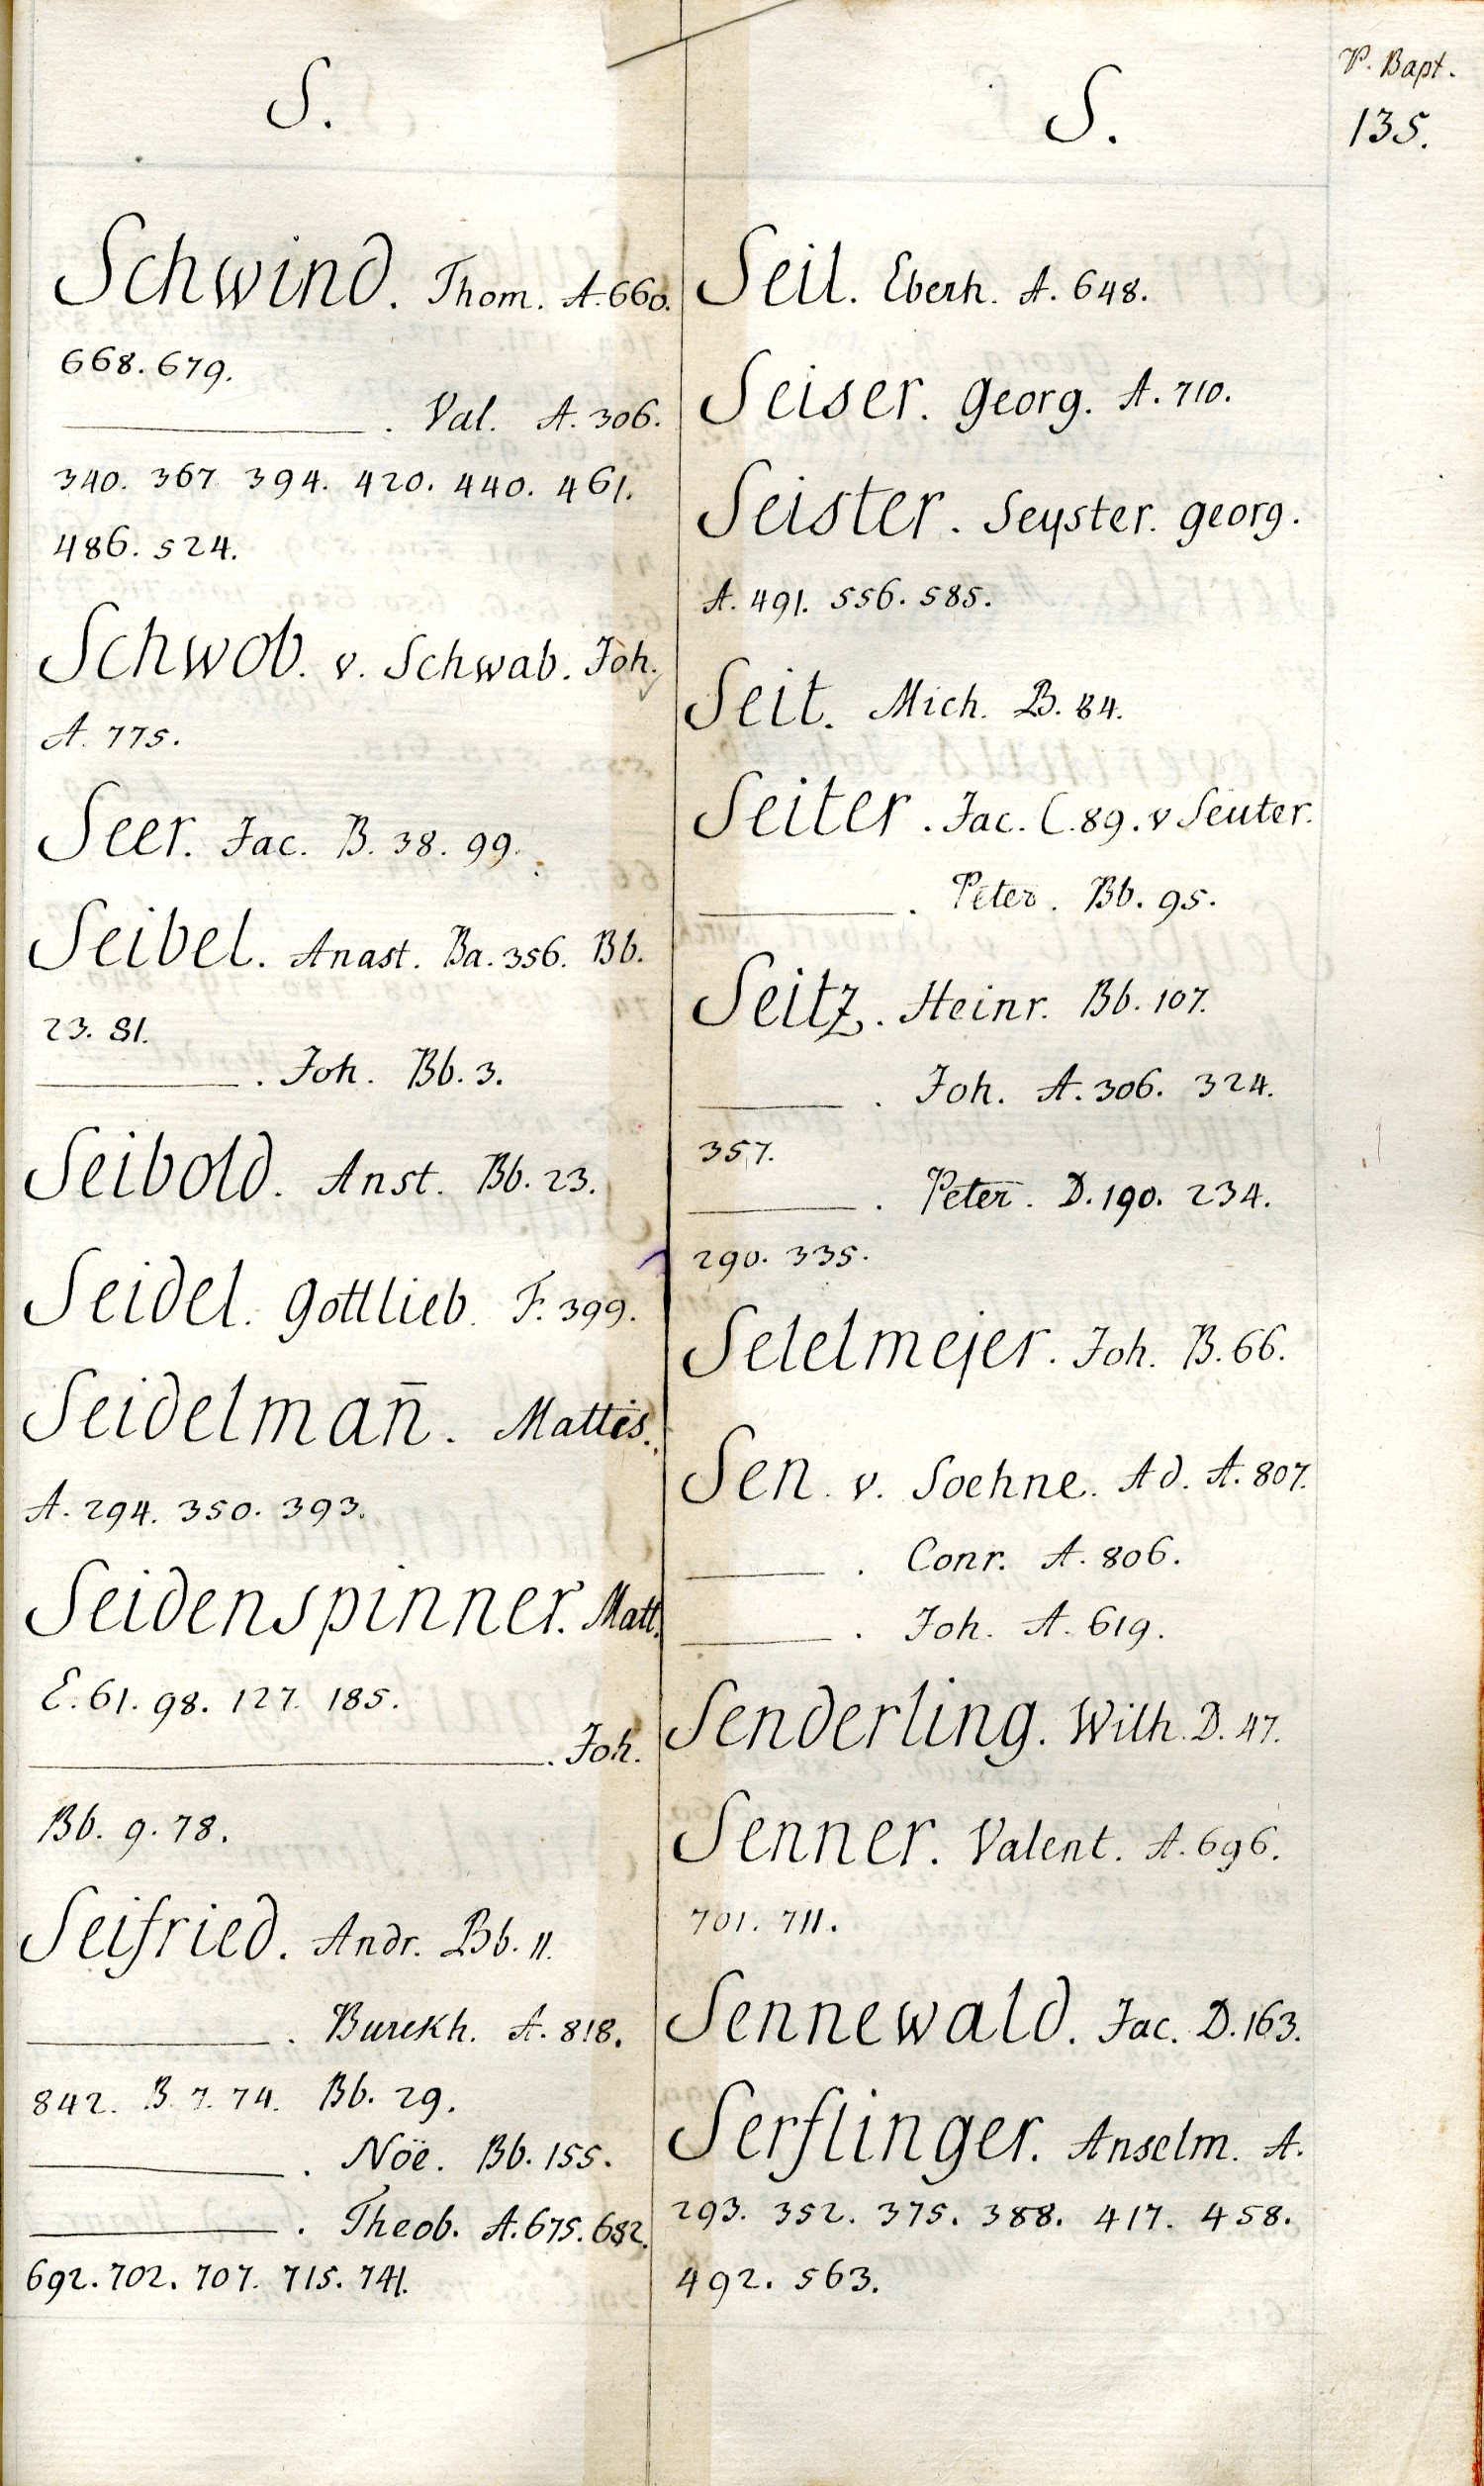 P. Bapt.
135.
S.
Schwind. Thom. A. 660.
668. 679.
. Val. A. 306.
340. 367 394. 420. 440. 461.
486. 524.
Schwob. v. Schwab. Joh.
A. 775.
Seer. Jac. B. 38. 99.
Seibel. Anast. Ba. 356. Bb.
23. 81.
. Joh. Bb. 3.
Seibold. Anst. Bb. 23.
Seidel. Gottlieb. F. 399.
Seidelman̄. Mattis.
A. 294. 350. 393.
Seidenspinner. Matt.
E. 61. 98. 127. 185.
. Joh.
Bb. 9. 78.
Seifried. Andr. Bb. 11.
. Burckh. A. 818.
842. B. 7. 74. Bb. 29.
. Nöe. Bb. 155.
. Theob. A. 675. 682.
692. 702. 707. 715. 741.
S.
Seil. Eberh. A. 648.
Seiser. Georg. A. 710.
Seister. Seyster. Georg.
A. 491. 556. 585.
Seit. Mich. B. 84.
Seiter. Jac. C. 89. v Seuter.
. Peter. Bb. 95.
Seitz. Heinr. Bb. 107.
. Joh. A. 306. 324.
357.
. Peter. D. 190. 234.
290. 335.
Selelmejer. Joh. B. 66.
Sen. v. Soehne. Ad. A. 807.
. Conr. A. 806.
. Joh. A. 619.
Senderling. Wilh. D. 47.
Senner. Valent. A. 696.
701. 711.
Sennewald. Jac. D. 163.
Serflinger. Anselm. A.
293. 352. 375. 388. 417. 458.
492. 563.